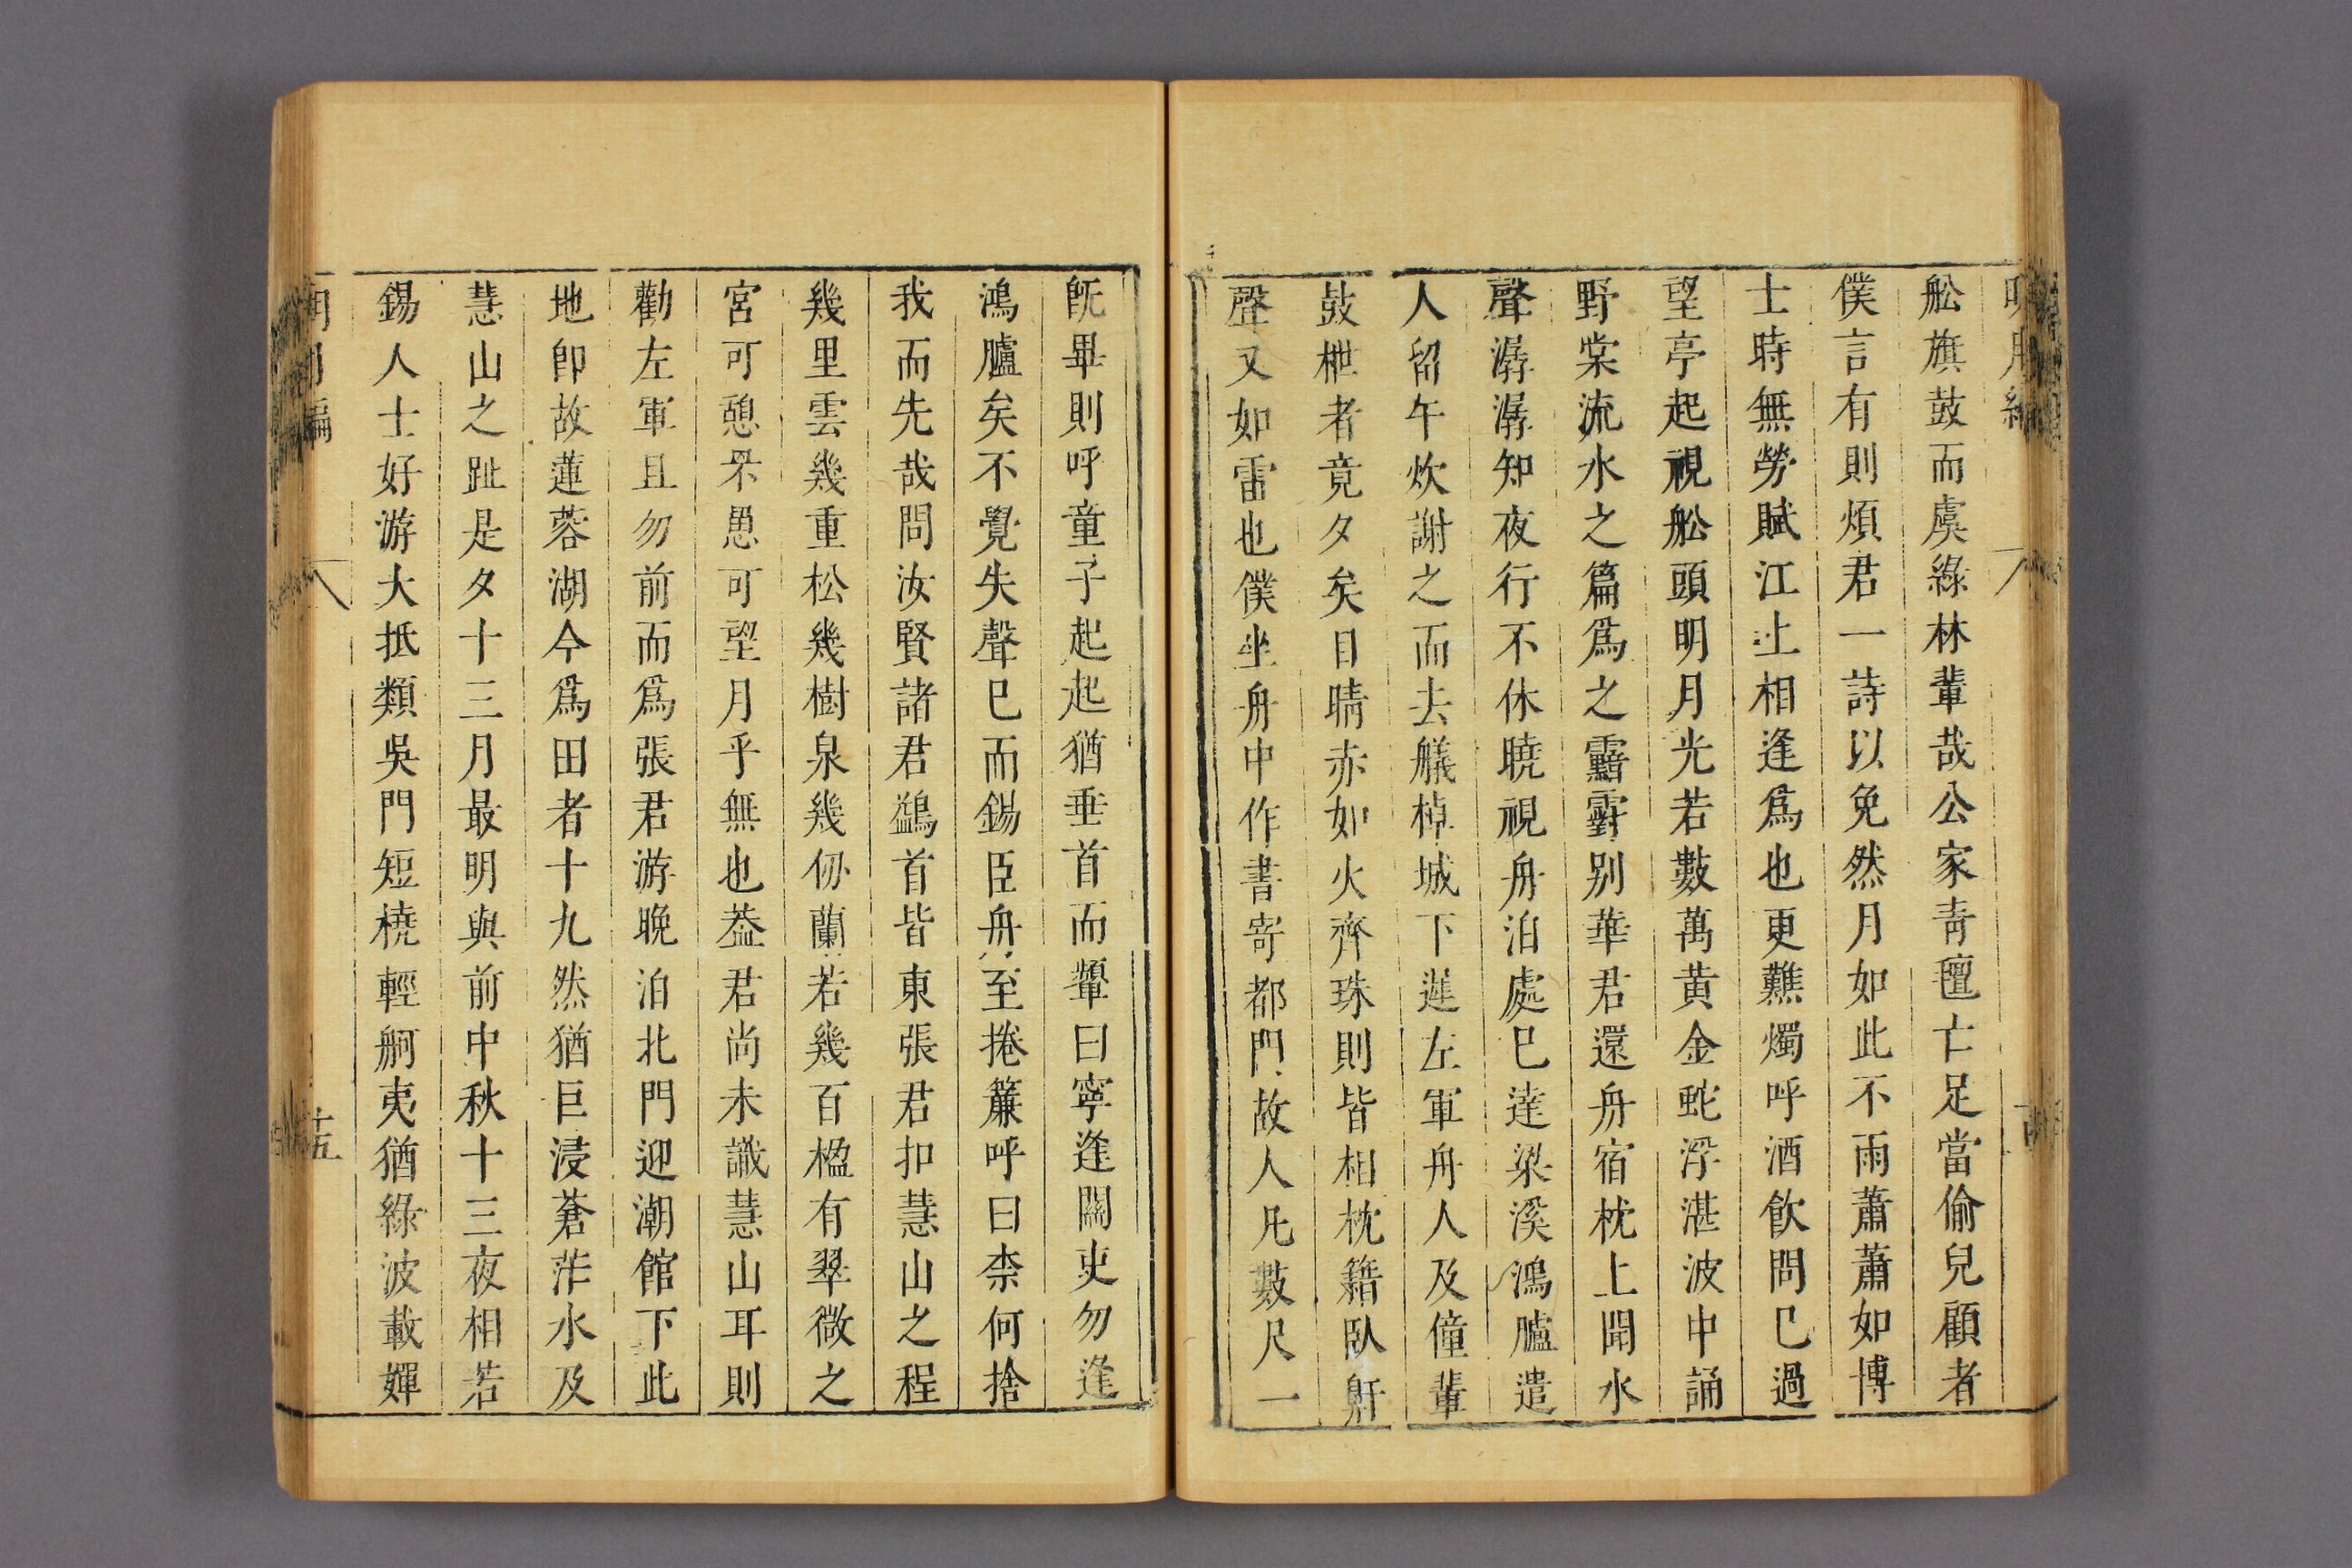 舩旗鼓而虞綠林輩哉公家青氊亡足當偷兒顧者
僕言有則煩君一詩以免然月如此不雨蕭蕭如博
士時無勞賦江上相逢爲也更爇燭呼酒飲問已過
望亭起視舩頭明月光若數萬黃金蛇浮湛波中誦
野棠流水之篇爲之靉霴别華君還舟宿枕上聞水
聲潺潺知夜行不休曉視舟泊處已達梁溪鴻臚遣
人留午炊謝之而去艤棹城下遲左軍舟人及僮輩
鼓枻者竟夕矣日晴赤如火齊珠則皆相枕籍臥鼾
聲又如雷也僕坐舟中作書寄都門故人凡數尺一
旣畢則呼童子起起猶垂首而顰曰寧逢關吏勿逢
鴻臚矣不覺失聲已而錫臣舟至捲簾呼曰柰何捨
我而先哉問汝賢諸君鷁首皆東張君扣慧山之程
幾里雲幾重松幾樹泉幾仞蘭若幾百楹有翠微之
宮可憩罘罳可望月乎無也葢君尚未識慧山耳則
勸左軍且勿前而爲張君游晚泊北門迎潮館下此
地卽故蓮蓉湖今爲田者十九然猶巨浸蒼茫水及
慧山之趾是夕十三月最明與前中秋十三夜相若
錫人士好游大抵類吳門短橈輕舸夷猶綠波載嬋
十五